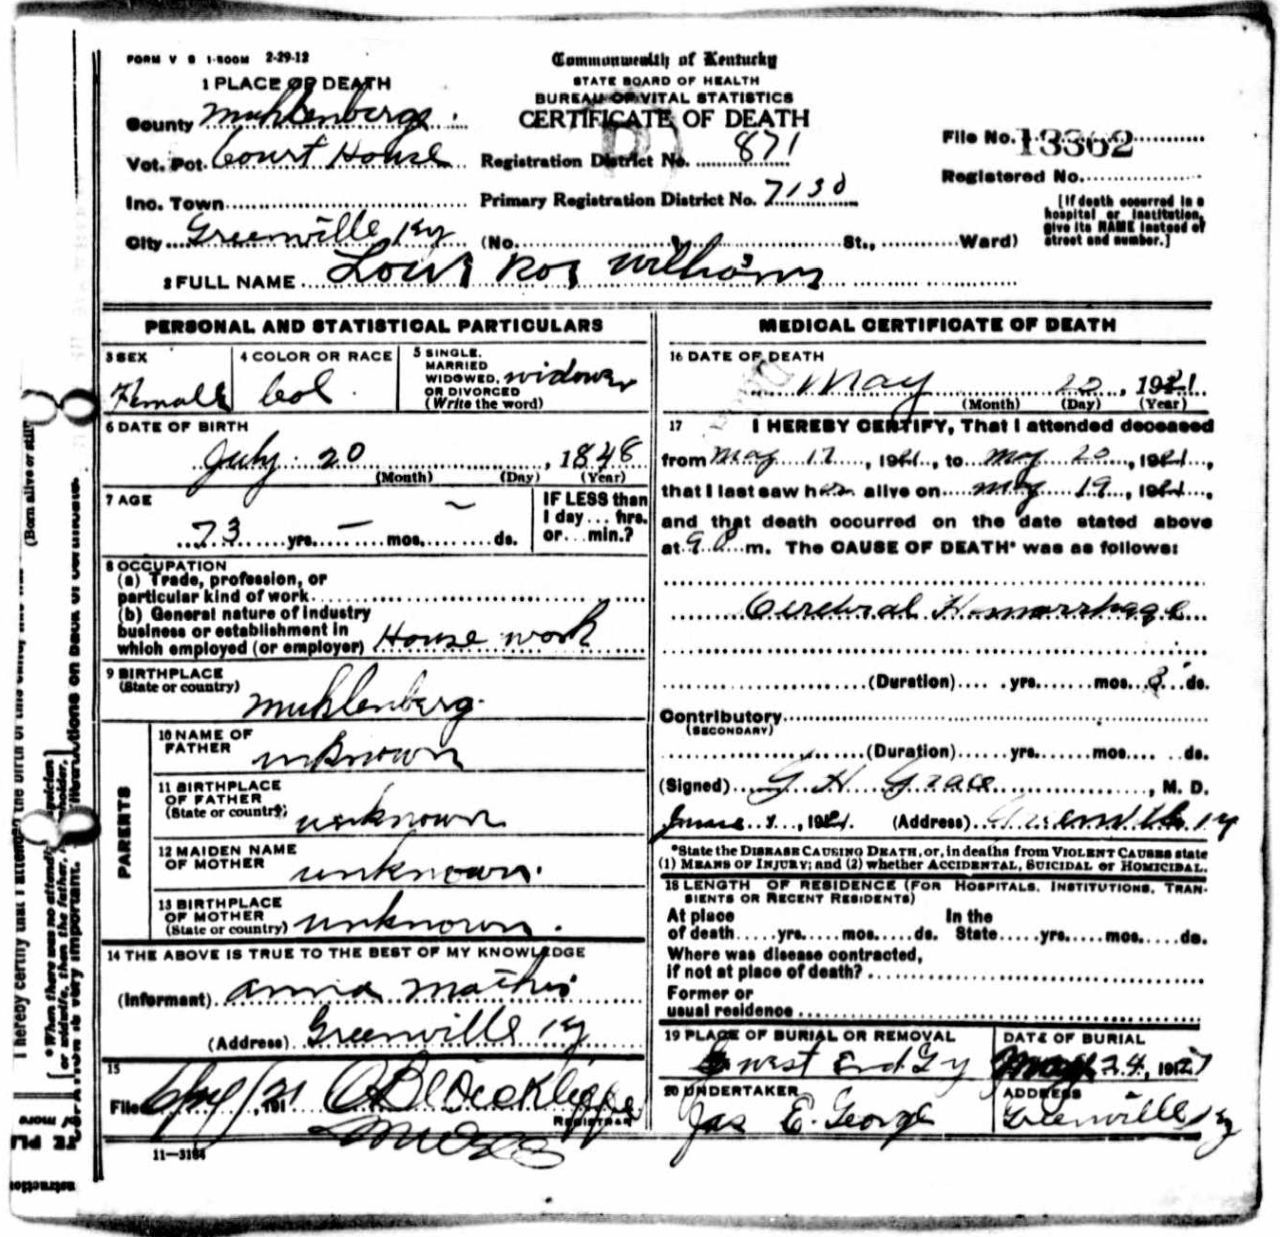 FORM V S 1-500M 2-29-12
Commonwealth of Kentucky
STATE BOARD OF HEALTH
BUREAU OF VITAL STATISTICS
CERTIFICATE OF DEATH
1 PLACE OF DEATH
County Muhlenberg
Vot. Pot. Court House
Registration District No. 871
File No. 13362
Inc. Town
Primary Registration District No. 7130
Registered No.
City Greenville Ky (No. St., Ward)
[If death occurred in a
hospital or institution,
give its NAME instead of
street and number.]
2 FULL NAME Williams
PERSONAL AND STATISTICAL PARTICULARS
3 SEX Female
4 COLOR OR RACE Col.
5 SINGLE,
MARRIED
WIDOWED, widower
OR DIVORCED
(Write the word)
6 DATE OF BIRTH
July 20, 1848
(Month) (Day) (Year)
7 AGE
73 yrs. — mos. ~ ds.
IF LESS than
1 day... hrs.
or... min.?
8 OCCUPATION
(a) Trade, profession, or
particular kind of work
(b) General nature of industry
business or establishment in
which employed (or employer) House work
9 BIRTHPLACE
(State or country) Muhlenberg
PARENTS
10 NAME OF
FATHER unknown
11 BIRTHPLACE
OF FATHER
(State or country) unknown
12 MAIDEN NAME
OF MOTHER unknown.
13 BIRTHPLACE
OF MOTHER
(State or country) unknown.
14 THE ABOVE IS TRUE TO THE BEST OF MY KNOWLEDGE
(Informant) Anna Mathis
(Address) Greenville Ky
15
Filed , 191
REGISTRAR
11—3184
MEDICAL CERTIFICATE OF DEATH
16 DATE OF DEATH
May 20, 1921
(Month) (Day) (Year)
17 I HEREBY CERTIFY, That I attended deceased
from May 17, 1921, to May 20, 1921,
that I last saw her alive on May 19, 1921,
and that death occurred on the date stated above
at 9 P m. The CAUSE OF DEATH* was as follows:
Cerebral Hemorrhage
(Duration) yrs. mos. 3 ds.
Contributory
(SECONDARY)
(Duration) yrs. mos. ds.
(Signed) G H Grace, M. D.
June , 1921. (Address) Greenville Ky
*State the DISEASE CAUSING DEATH, or, in deaths from VIOLENT CAUSES state
(1) MEANS OF INJURY; and (2) whether ACCIDENTAL, SUICIDAL or HOMICIDAL.
18 LENGTH OF RESIDENCE (FOR HOSPITALS, INSTITUTIONS, TRAN-
SIENTS OR RECENT RESIDENTS)
At place In the
of death yrs. mos. ds. State yrs. mos. ds.
Where was disease contracted,
if not at place of death?
Former or
usual residence
19 PLACE OF BURIAL OR REMOVAL
West End
DATE OF BURIAL
May 24, 192
20 UNDERTAKER
Jas E. George
ADDRESS
Greenville Ky
(Born alive or still
I hereby certify that I attended the birth of this child,
*When there was no attend
or midwife, then the father,